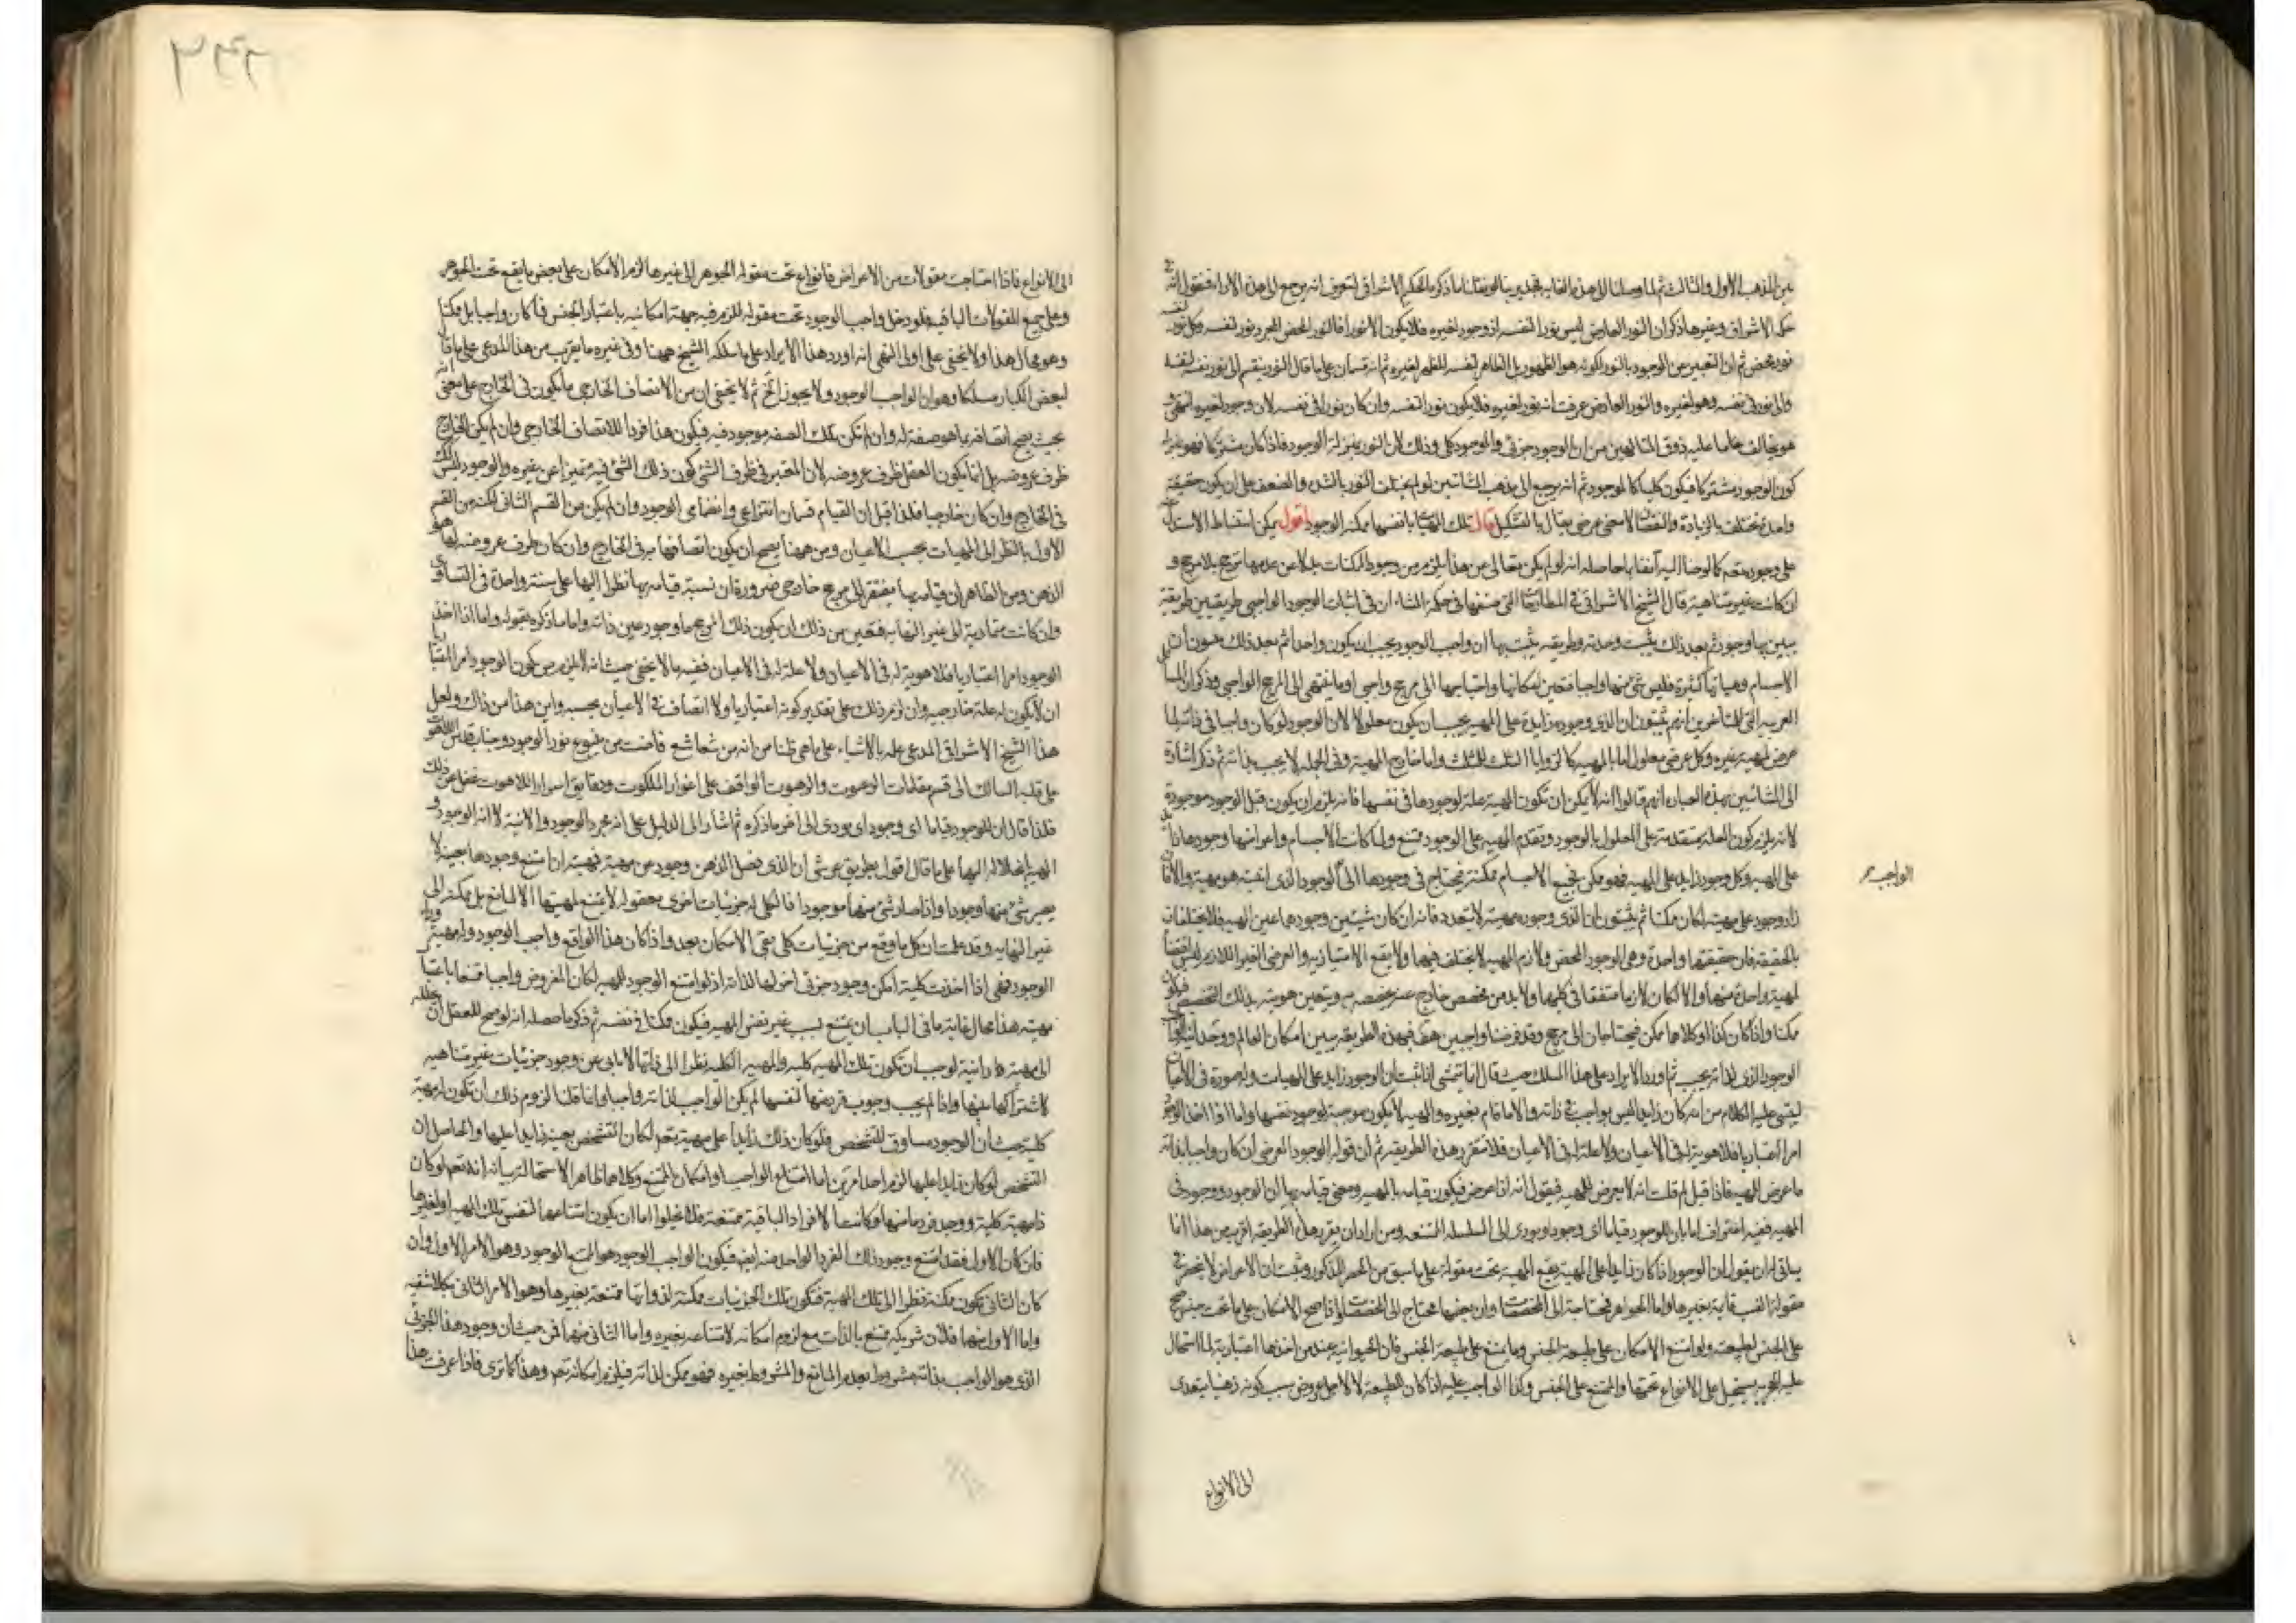 من المذهب الأول والثالث ثم
حكمة الاشراق وغيرها ذكر ان النور العارض ليس نورا لنفسه اذ وجوده لغيره فلا يكون الا نورا فالنور المحض المجرد نور لنفسه وكل نور لنفسه
نور محض ثم ان التعبير عن الوجود بالنور لكونه هو الظهور بل الظاهر لنفسه المظهر لغيره ثم انه قسمان على ما قال النور ينقسم الى نور نفسه لنفسه
والى نور في نفسه وهو لغيره والنور العارض عرفت انه نور لغيره فلا يكون نورا لنفسه وان كان نورا في نفسه لان وجوده لغيره
هو يخالف ما عليه ذوق المتالهين من ان الوجود جزئي والموجود كلي وذلك لان النور بمنزلة الوجود فاذا كان مشتركا فهو
كون الوجود مشتركا فيكون كليا كالموجود ثم انه يرجع الى مذهب المشائين لو لم يختلف النور بالشدة والضعف على ان يكون حقيقة
واحدة تختلف بالزيادة والنقصان لا معنى عرضي يقال بالتشكيك قال تلك المهيات بانفسها ممكنة الوجود اقول يمكن استنباط الاستدلال
على وجوده تعم كما لوحنا اليه آنفا بما حاصله انه لو لم يكن تعالى عن هذا يلزم من وجود الممكنات بدلا عن عدمها ترجح بلا مرجح و
ان كانت غير متناهية قال الشيخ الاشراقي في المطارحات التي صنفها في حكمة المشاء ان في اثبات الوجود الواجبي طريقين طريقة
يبين بها وجوده ثم بعد ذلك يثبت وحدته وطريقة يثبت بها ان واجب الوجود يجب ان يكون واحدا ثم بعد ذلك
الاجسام وهيأتها كثيرة فليس شئ منها واجبا فتعين امكانها واحتياجها الى مرجح واجبي او ما ينتهي الى المرجح الواجبي وذكر ان
التي للمتاخرين انهم يثبتون ان الذي وجوده زايدة على المهية يجب ان يكون معلولا لان الوجود لو كان واجبا في ذاته لما
عرض لمهية غيره وكل عرضي معلول اما بالمهية كالزوايا الثلث للمثلث واما خارج المهية وفي الجملة لا يجب بذاته ثم ذكر اشارة
الى المشائين بهذه العبارة انهم قالوا انه لا يمكن ان تكون المهية علة لوجودها في نفسها فانه يلزم ان يكون قبل الوجود موجودة
لانه يلزم كون العلة متقدمة على المعلول بالوجود وتقدم المهية على الوجود ممتنع ولما كانت الاجسام واعراضها وجودها
على المهية وكل وجود زايد على المهية فهو ممكن فجميع الاجسام ممكنة فيحتاج في وجودها الى الوجود الذي انيته هو مهيته والا
زاد وجوده على مهيته لكان ممكنا ثم يثبتون ان الذي وجوده مهيته لا يتعدد فانه ان كان شيئين وجودهما عين المهية فلا يختلفان
بالحقيقة فان حقيقتها واحدة وهي الوجود المحض ولازم المهية لا يختلف فيهما ولا يقع الامتياز به والعرضي الغير اللازم ليس
لمهية واحدة منهما والا لكان لازما متفقا في كليهما ولا بد من مخصص خارج عنه يخصصه به ويتعين هويته بذلك المخصص فيكون
ممكنا واذا كان كذا او كلاهما ممكن فيحتاجان الى مرجح وقد فرضنا واجبين هف فهذه الطريقة يبين امكان العالم ووحدانية
الوجود الذي لذاته يجب ثم اورد الايراد على هذا المسلك حيث قال انما يتمشى اذا ثبت ان الوجود زايد على المهيات وله صورة في الاعيان
ليبتني عليه الكلام من انه كان زايدا ليس بواجب في ذاته والا ما قام بغيره والمهية لا يكون موجبة لوجود نفسها واما اذا اخذ الوجود
امرا اعتباريا فلا هوية له في الاعيان ولا علة له في الاعيان فلا تتقرر هذه الطريقة ثم ان قوله الوجود العرضي ان كان واجبا لذاته
ما عرض للمهية فاذا قيل لم قلت انه لا يعرض للمهية فيقول انه اذا عرض فيكون قيامه بالمهية ومعنى قيامه بها ان الوجود وجود في
المهية ففيه اعتراف اما بان للوجود قياما اي وجودا ويودي الى السلسلة الممتنعة ومن اراد ان يقرر هذه الطريقة اقرب من هذا انما
يتاتى ان يقول ان الوجود اذا كان زايدا على المهية يقع المهية تحت مقولة على ما سبق من الحصر المذكور ويثبت ان الاعراض لا
مقولاتها قايمة بغيرها واما الجواهر فيحتاجة الى المخصصات او ان بعضها محتاج الى المخصصات واذا صح الامكان على ما تحت جنس صح
على الجنس لطبيعته ولو امتنع الامكان على طبيعة الجنس وما يمتنع على طبيعة الجنس فان الحيوانية عند من اخذها اعتبارية لما استحال
عليها الحجرية يستحيل على الانواع تحتها والممتنع على الجنس وكذا الواجب عليه اذا كان للطبيعة لا لاجل عروض سبب كونه ذهنيا يتعدى
الى الانواع
الواجب صح
٣٤٢
الى الانواع فاذا احتاجت مقولات من الاعراض فانواع تحت مقولة الجوهر الى غيرها لزم الامكان على بعض ما يقع تحت الجوهر
وعلى جميع المقولات الباقية فلو دخل واجب الوجود تحت مقولة للزم فيه جهة امكانية باعتبار الجنس فما كان واجبا بل ممكنا
وهو محال هذا ولا يخفى على اولى النهى انه اورد هذا الايراد على ما سلكه الشيخ ههنا وفي غيره ما يقرب من هذا المدعى على ما قال
لبعض الكبار مسلكا وهو ان الواجب الوجود ولا يجوز الخ ثم لا يخفى ان من الاتصاف الخارجي ما يكون في الخارج على معنى انه
بحيث يصح اتصافه بما هو صفة له وان لم تكن تلك الصفة موجود فيه فيكون هذا فردا للاتصاف الخارجي وان لم يكن الخارج
ظرف عروضه بل انما يكون العقل ظرف عروضه لان المعتبر في ظرف الشئ كون ذلك الشئ فيه متميزا عن غيره والوجود ليس كذلك
في الخارج وان كان خارجيا فلذا قيل ان القيام قسمان انتزاعي وانضمامي الوجود وان لم يكن من القسم الثاني لكنه من القسم
الاول بالنظر الى المهيات بحسب الاعيان ومن ههنا يصح ان يكون اتصافها به في الخارج وان كان ظرف عروضه لها هو
الذهن ومن الظاهر ان قيامه بها يفتقر الى مرجح خارجي ضرورة ان نسبة قيامه بها نظرا اليها على سنة واحدة في التساوي
وان كانت متمادية الى غير النهاية فتعين من ذلك ان يكون ذلك المرجح ما وجوده عين ذاته واما ما ذكره بقوله واما اذا اخذ
الوجود امرا اعتباريا فلا هوية له في الاعيان ولا علة له في الاعيان ففيه ما لا يخفى حيث انه لا يلزم من كون الوجود امرا اعتباريا
ان لا يكون له علة خارجية وان لزم ذلك على تقدير كونه اعتباريا ولا اتصاف في الاعيان بحسبه واين هذا من ذلك ولعل
هذا الشيخ الاشراقي المدعي علمه بالاشياء على ما هي ظنا من انه من شعاشع فاضت من ينبوع نور الوجود وجناب قدس اللاهوت
على قلب السالك الى قسم مقدمات الوهوت والرهبوت الواقف على اغوار الملكوت ودقايق اسرار اللاهوت غفل عن ذلك
فلذا قال ان للوجود قياما اي وجودا يودي الى آخر ما ذكره ثم اشار الى الدليل على انه مجرد الوجود والانية لا انه الوجود و
المهية بانحلاله اليها على ما قال اقول بطريق عرشي ان الذي فصل الذهن وجوده من مهيته فمهيته ان امتنع وجودها بعينه لا
يصير شئ منها وجودا واذا صار شئ منها موجودا فالكلي له جزئيات اخرى معقولة لا يمتنع لمهيتها الا لمانع بل ممكنة الى
غير النهاية وقد علمت ان كل ما وقع من جزئيات كلي بقى الامكان بعد واذا كان هذا الواقع واجب الوجود وله مهية وراء
الوجود فهي اذا اخذت كلية امكن وجود جزئي آخر لها لذاته اذ لو امتنع الوجود للمهية لكان المفروض واجبا ممتنعا باعتبار
مهيته هذا محال غاية ما في الباب ان يمتنع بسبب غير نفس المهية فيكون ممكنا في نفسه ثم ذكر ما حصله انه لو صح للعقل ان يحلله
الى مهية ما وانية لوجب ان تكون تلك المهية كلية والمهية الكلية نظرا الى ذاتها لا يابى عن وجود جزئيات غير متناهية
لاشتراكها بينها واذا لم يجب وجوب فرد منها لنفسها لم يكن الواجب لذاته واجبا وانما قلنا لزوم ذلك ان تكون له مهية
كلية حيث ان الوجود مساوق للتشخص فلو كان ذلك زايدا على مهيته تعم لكان التشخص بعينه زايدا عليها والحاصل ان
التشخص لو كان زايدا عليها لزم احد امرين اما امتناع الواجب او امكان الممتنع وكلاهما ظاهر الاستحالة بيانه انه تعم لو كان
ذا مهية كلية ووجد فرد ما منها وكانت الافراد الباقية ممتنعة فلا يخلوا اما ان يكون امتناعها لنفس تلك المهية او لغيرها
فان كان الاول فقد امتنع وجود ذلك الفرد الواحد منه ايضا فيكون الواجب الوجود هو الممتنع الوجود وهو الامر الاول وان
كان الثاني يكون ممكنة نظرا الى تلك المهية فتكون تلك الجزئيات ممكنة لذواتها ممتنعة بغيرها وهو الامر الثاني بكلا شقيه
واما الاول منهما فلان شريكه ممتنع بالذات مع لزوم امكانه لامتناعه بغيره واما الثاني منهما فمن حيث ان وجود هذا الجزئي
الذي هو الواجب بذاته مشروط بعدم المانع والمشروط بغيره فهو ممكن لذاته فيلزم امكانه تعم وهذا كما ترى فاذا عرفت هذا